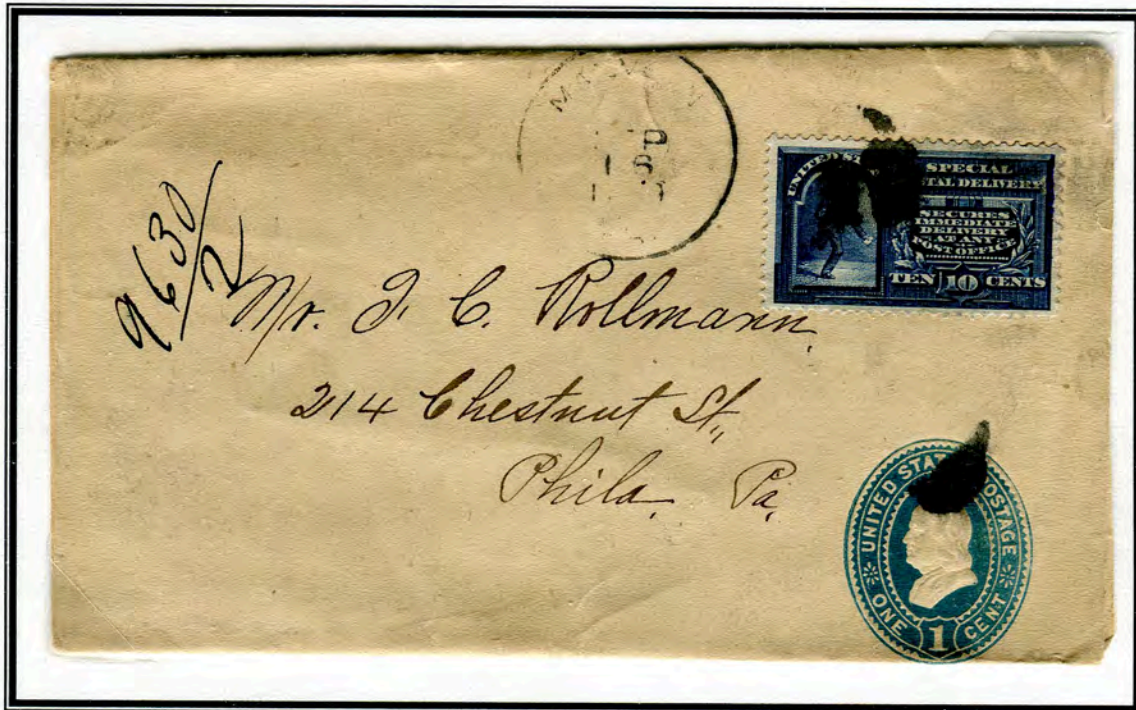 9630/2
SPECIAL
DELIVERY
SECURES
IMMEDIATE
DELIVERY
AT ANY
POST OFFICE
TEN 10 CENTS
Mr. J. C. Rollmann,
214 Chestnut St.,
Phila. Pa.
UNITED STATES POSTAGE
ONE 1 CENT